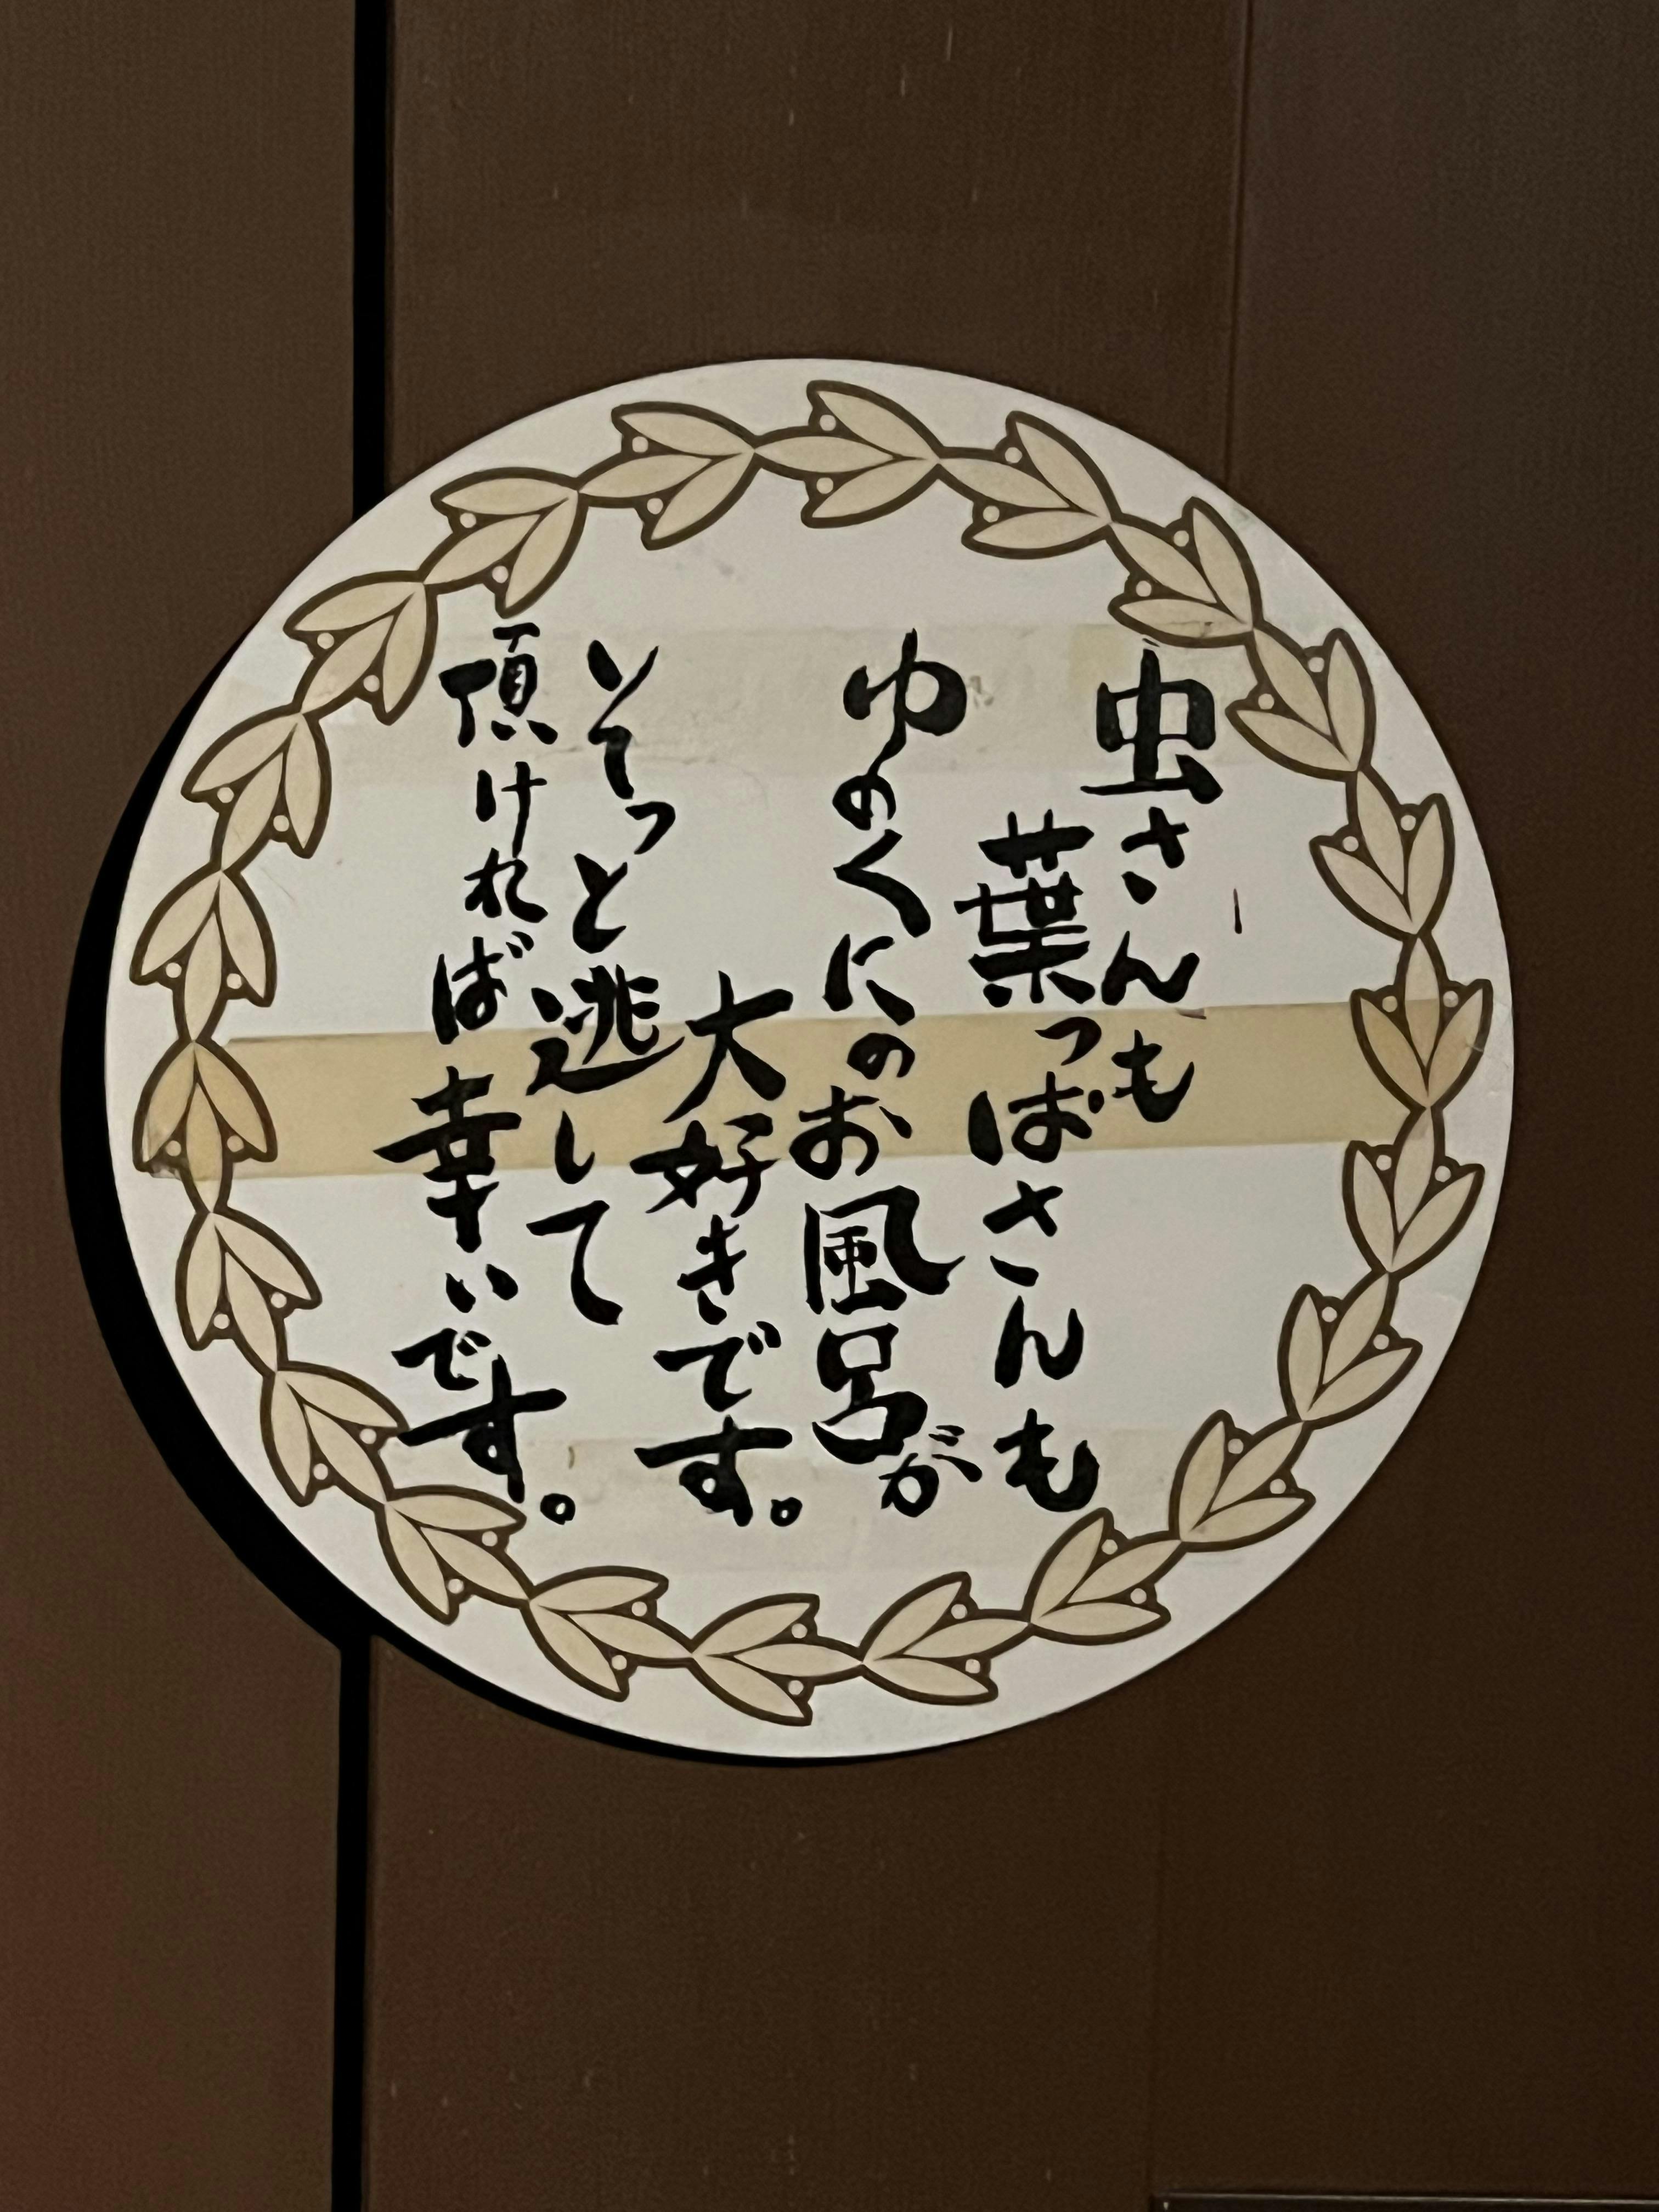 虫さんも
葉っぱさんも
ゆのくにのお風呂が
大好きです。
そっと逃して
頂ければ幸いです。